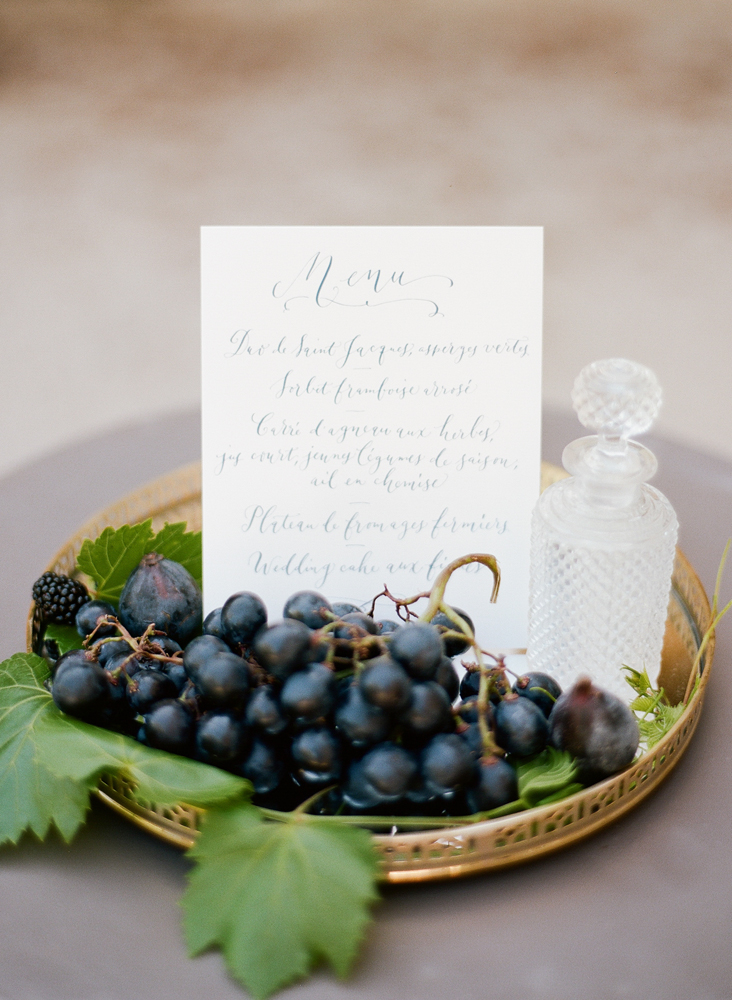 Menu
Duo de Saint Jacques, asperges vertes
Sorbet framboise arrosé
Carré d'agneau aux herbes,
jus court, jeunes légumes de saison,
ail en chemise
Plateau de fromages fermiers
Wedding cake aux